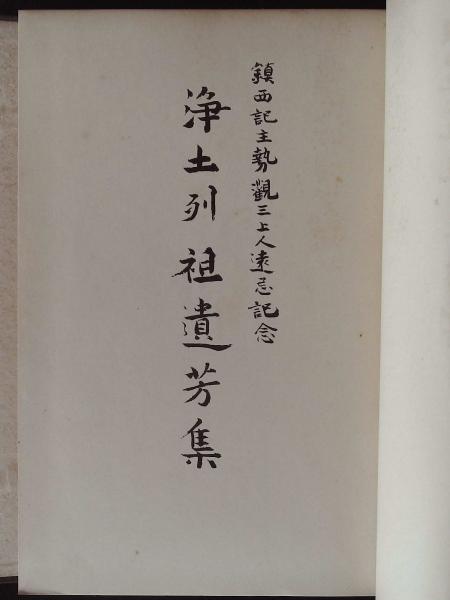 鎮西記主勢觀三上人遠忌記念
浄土列祖遺芳集